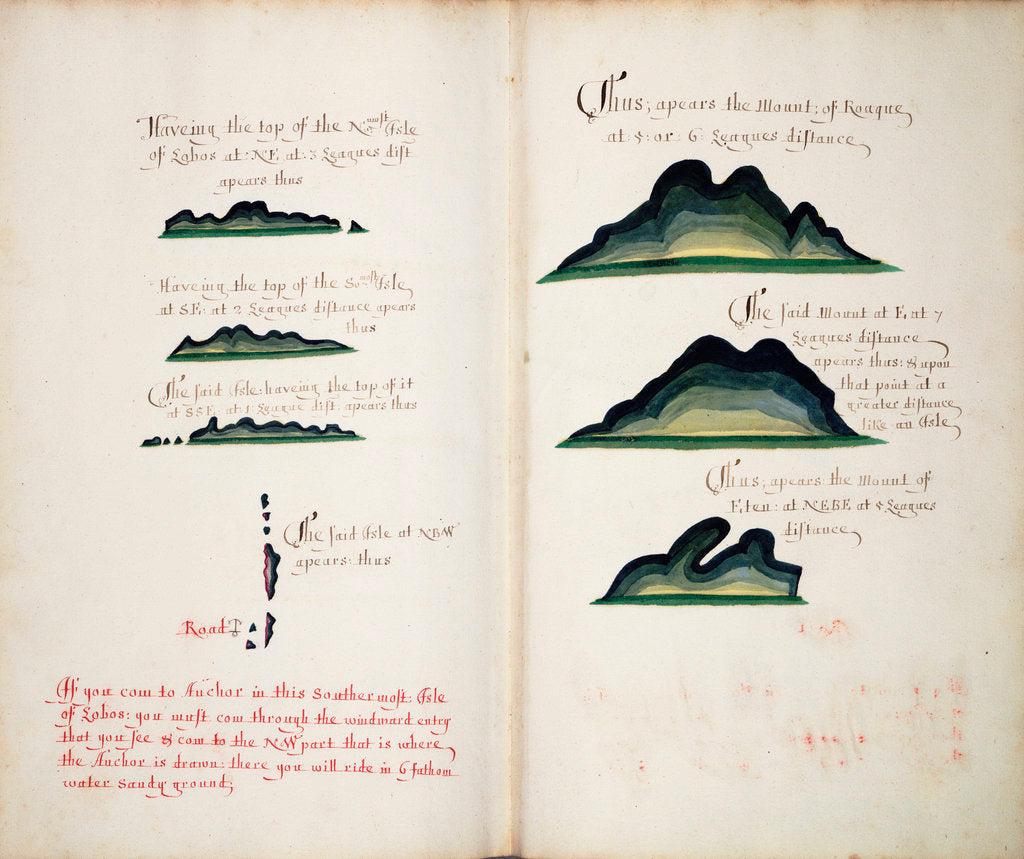 Haveing the top of the N:most Isle
of Lobos at: NE at: 3 Leagues dist
apears thus
Haveing the top of the So:most Isle
at SE: at 2 Leagues distance apears
thus
The said Isle: haveing the top of it
at SSE: at 1: League dist: apears thus
The said Isle at NBW
apears: thus
Road
If you com to Anchor in this Southermost: Isle
of Lobos: you must com through the windward entry
that you see & com to the NW part that is where
the Anchor is drawn: there you will ride in 6 fathom
water Sandy ground;
Thus; apears the Mount; of Roaque
at: 5: or: 6: Leagues distance
The said Mount at E, at 7
Leagues distance
apears thus: & upon
that point at a
greater distance
like an Isle
Thus; apears: the Mount of
Eten: at NEBE at 5 Leagues
distance